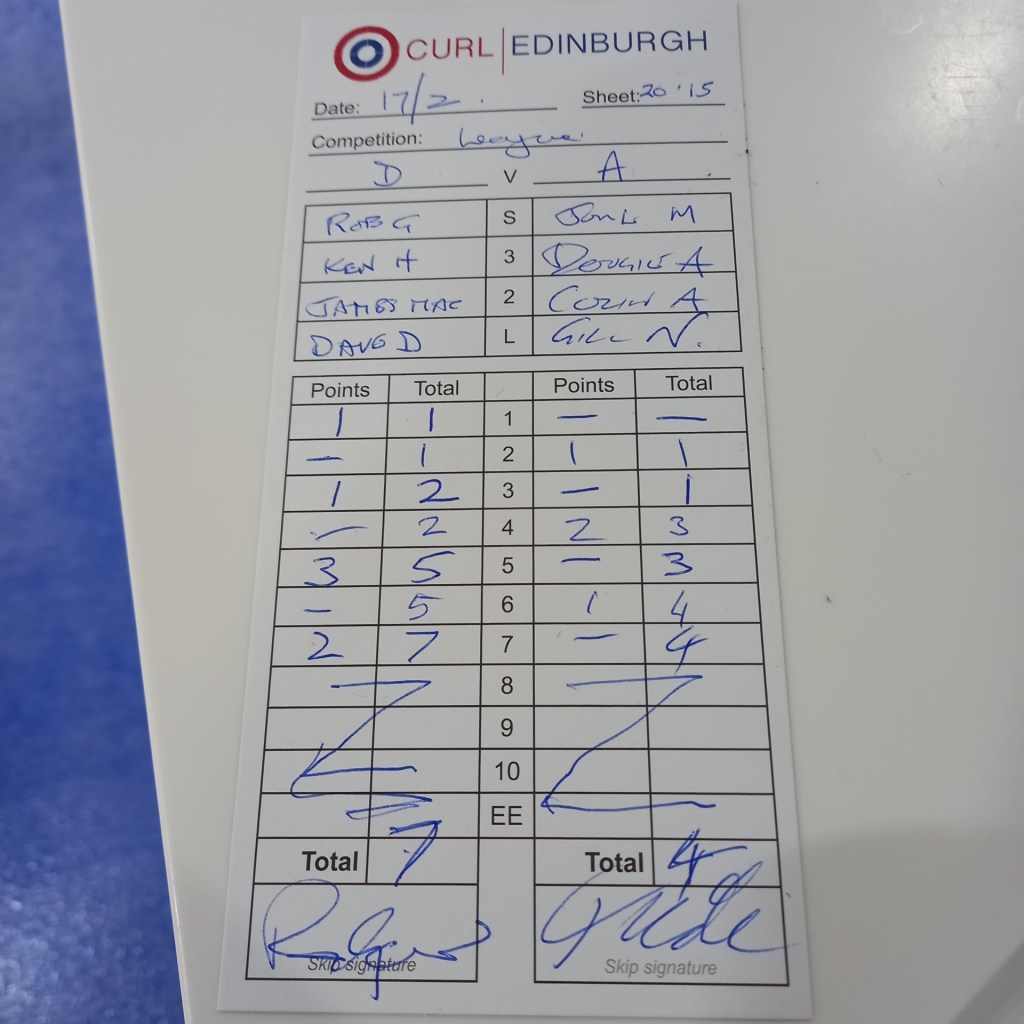 CURL | EDINBURGH
Date: 17/2. Sheet: 20'15
Competition: League
D V A
ROB G S M
KEN H 3 DOUGIE A
JAMES MAC 2 COLIN A
DAVE D L GILL N.
Points Total Points Total
1 1 1 — —
— 1 2 1 1
1 2 3 — 1
— 2 4 2 3
3 5 5 — 3
— 5 6 1 4
2 7 7 — 4
8
9
10
EE
Total 7 Total 4
Skip signature Skip signature